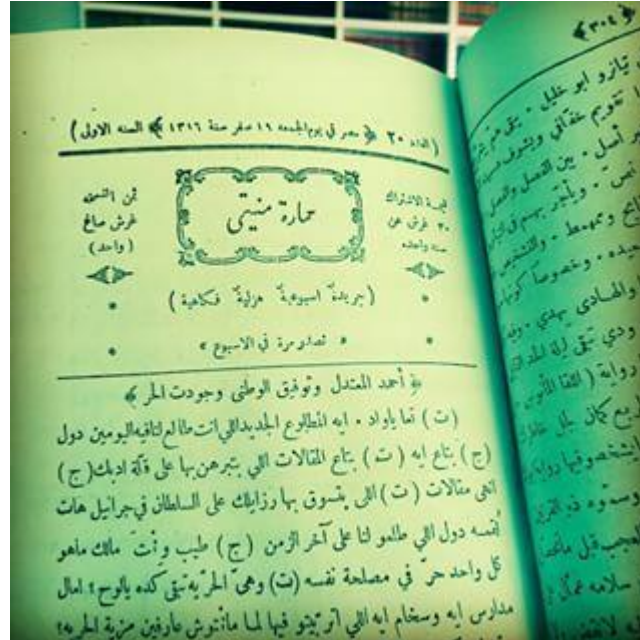 (العدد ٢٠ ﴿ مصر في يوم الجمعه ١٩ صفر سنة ١٣١٦ ﴾ السنه الاولى)
قيمة الاشتراك
٣٠ غرش عن
سنه واحده
حمارة منيتي
ثمن النسخه
غرش صاغ
(واحد)
(جريدة اسبوعية هزلية فكاهية)
« تصدر مرة في الاسبوع »
﴿ أحمد المعتدل وتوفيق الوطنى وجودت الحر ﴾
(ت) تعا ياواد ٠ ايه الطلوع الجديد اللي انت طالع لنا فيه اليومين دول
(ج) بتاع ايه (ت) بتاع المقالات اللي بتبرهن بها على قلة ادبك (ج)
انهى مقالات (ت) اللى بتسوق بها رزايلك على السلطان في جرانيل هات
لنفسه دول اللي طلعو لنا على آخر الزمن (ج) طيب وأنت مالك ماهو
كل واحد حرّ في مصلحة نفسه (ت) وهى الحر يه تبقى كده يالوح ؟ امال
مدارس ايه وسخام ايه اللي اتربيتو فيها لما مانتوش عارفين مزية الحريه ؟
﴿ ٣٠٤ ﴾
يازو ابو خليل ٠ بقى
تقويم خقافي ويشوف
أصل ٠ بين الفصل والفصل
وخصوصا كونها
والهادى يهدي ٠
ودي تبقى ليلة
رواية (
كان جل